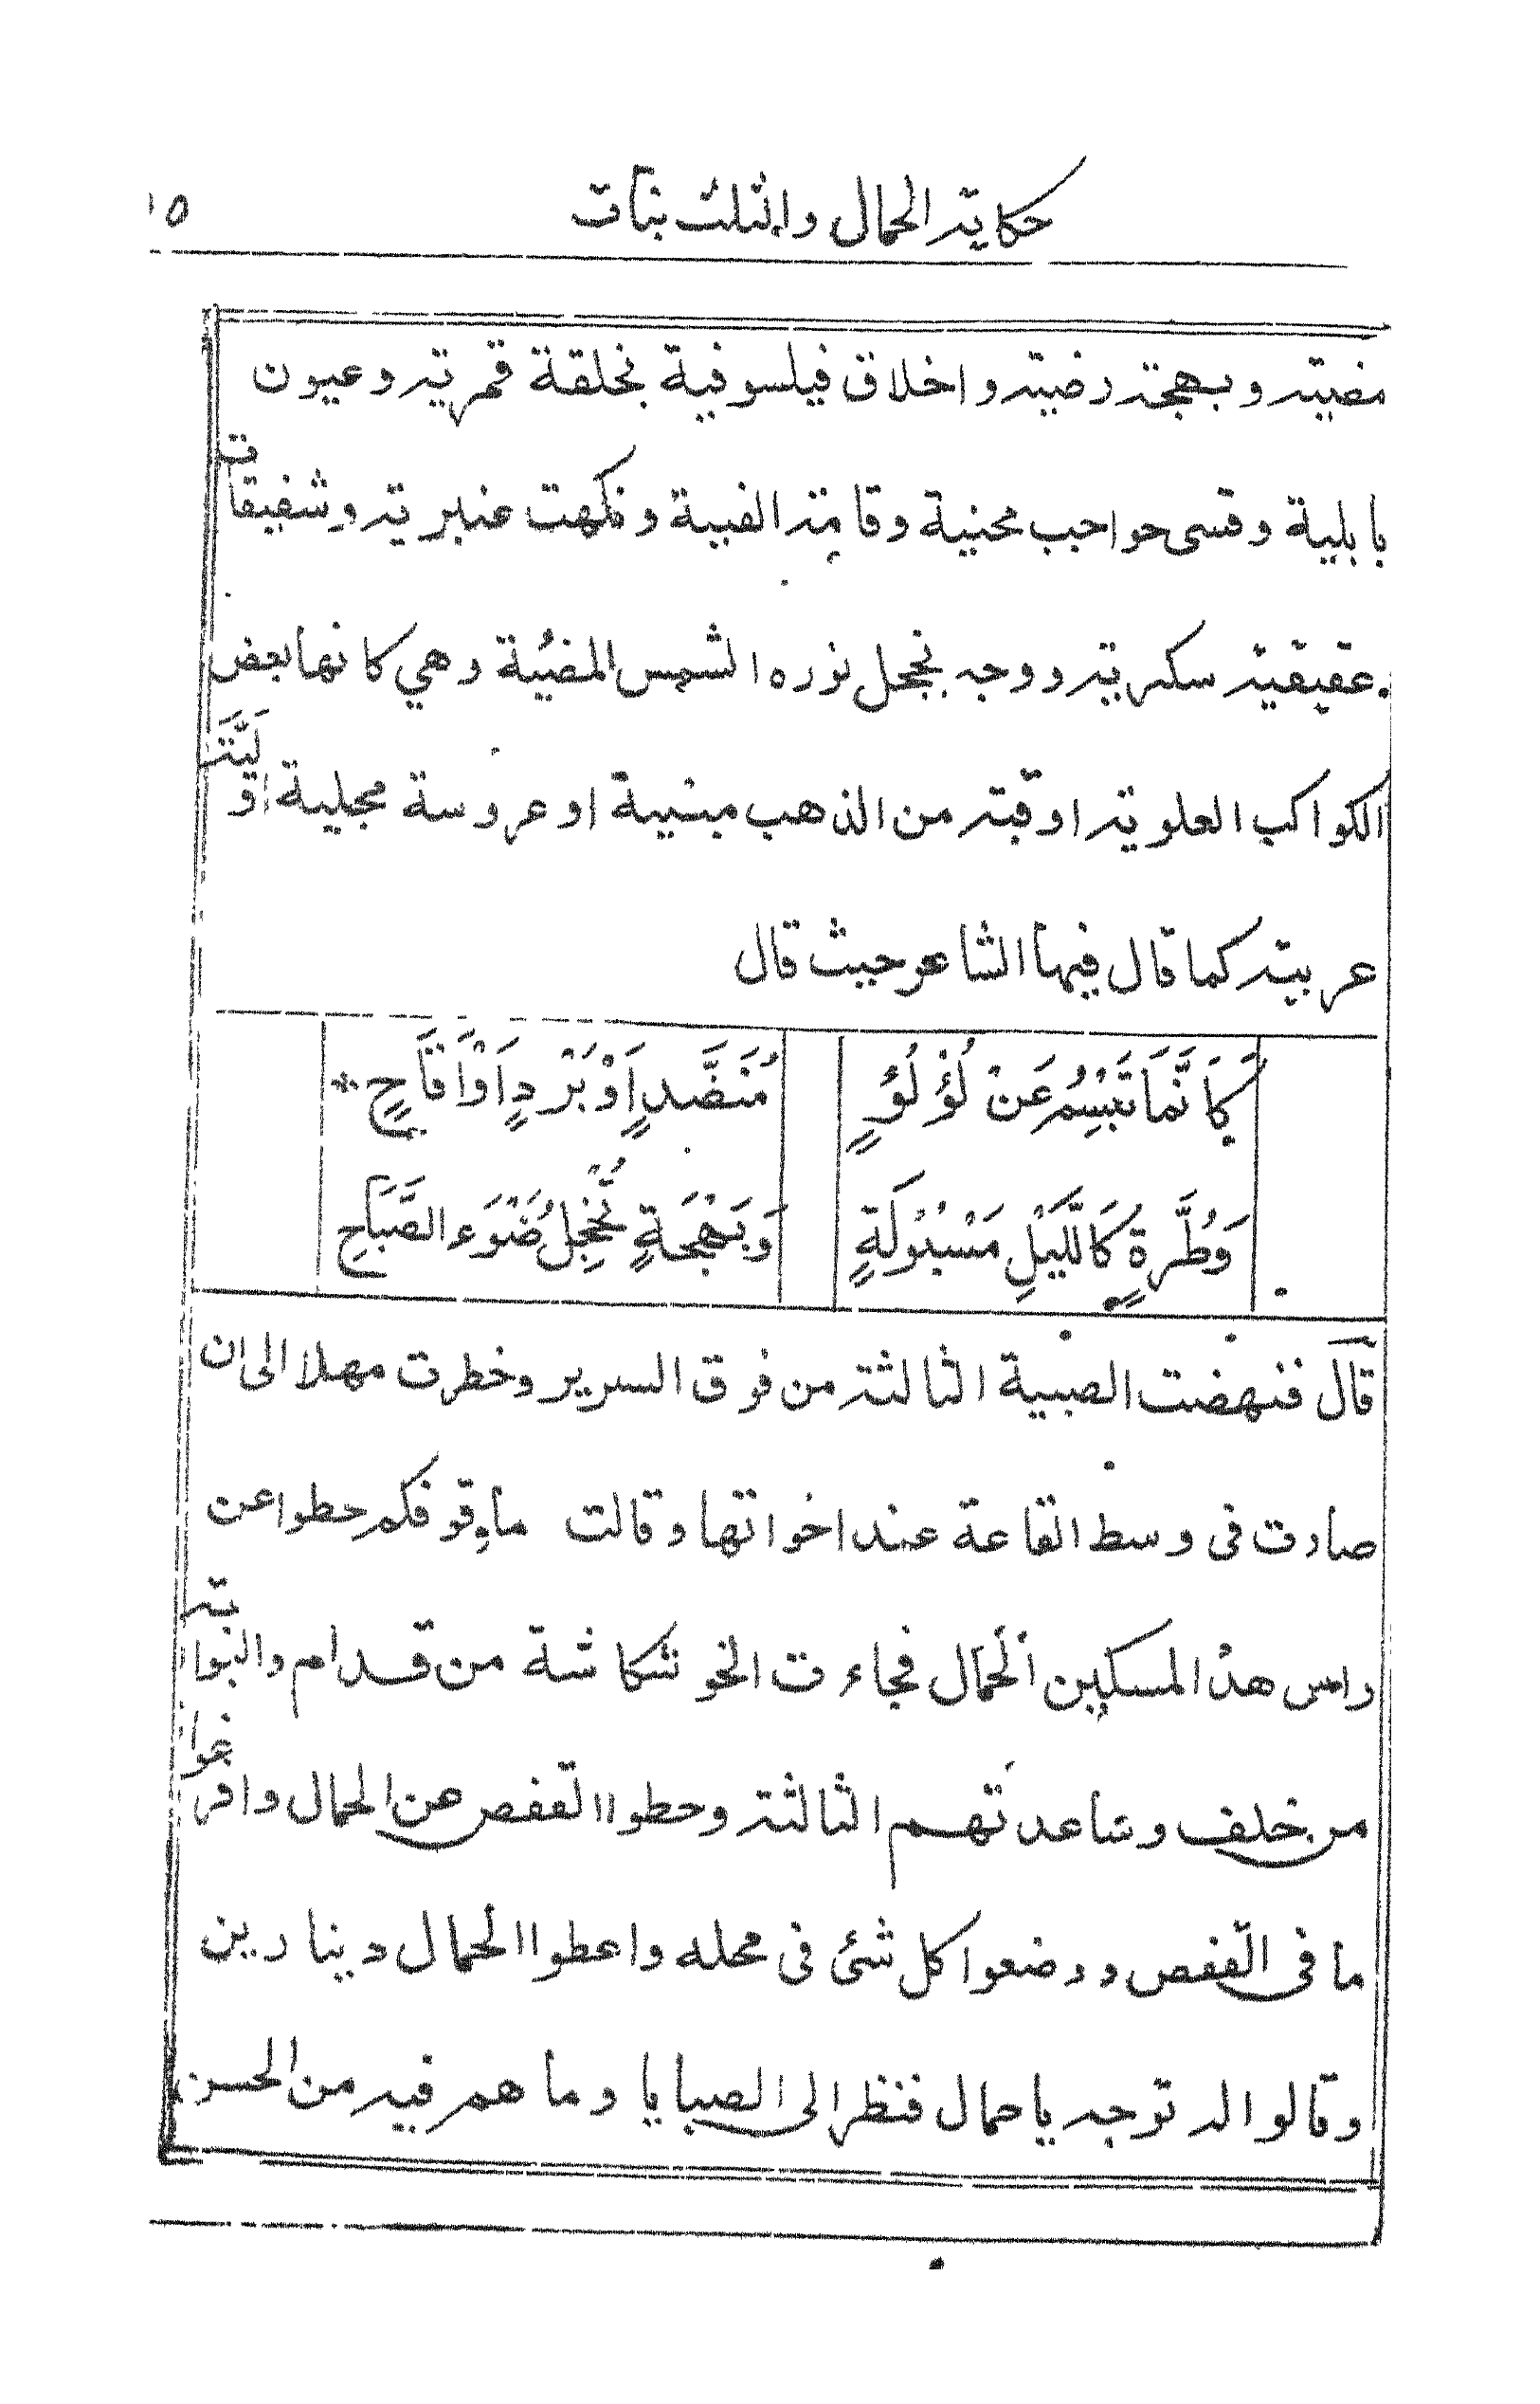 حكاية الحمال والثلث بنات ١٥
مضيته وبهجته رضيته واخلاق فيلسوفية بخلقة قمريته وعيون
بابلية وقسى حواجب محنية وقامته الفيية ونكهت عنبريته وشفيقات
عقيقيته سكريته ووجه يخجل نوره الشمس المضيئة وهي كانها بعض
الكواكب العلويته اوقبته من الذهب مبنية او عروسة مجلية او لَيَّنَة
عربيته كما قال فيها الشاعر حيث قال
كَاَنَّمَا تَبْسِمُ عَنْ لُؤْلُؤٍ مُنَضَّدٍ اَوْ بَرْدٍ اَوْ اَقَاحٍ *
وَطُرَّةٍ كَاللَّيْلِ مَسْبُوْلَةٍ وَبَهْجَةٍ تُخْجِلُ ضَوْءَ الصَّبَاحِ
قال فنهضت الصبية الثالثته من فوق السرير وخطرت مهلا الى ان
صارت فى وسط القاعة عند اخواتها وقالت ماوقوفكم حطوا عن
راس هذا المسكين الحمال فجاءت الخوشكاشة من قدام والبوابته
من خلف وساعدتهم الثالثته وحطوا القفص عن الحمال وافرغوا
ما فى القفص ووضعوا كل شئ فى محله واعطوا الحمال دينارين
وقالوا له توجه يا حمال فنظر الى الصبايا وما هم فيه من الحسن